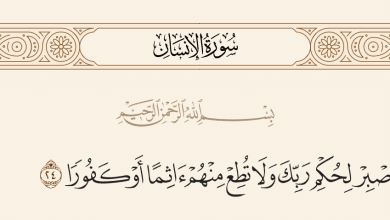 سُورَةُ الإِنسَانِ
بِسْمِ اللَّهِ الرَّحْمَٰنِ الرَّحِيمِ
صْبِرْ لِحُكْمِ رَبِّكَ وَلَا تُطِعْ مِنْهُمْ ءَاثِمًا أَوْ كَفُورًا ٢٤